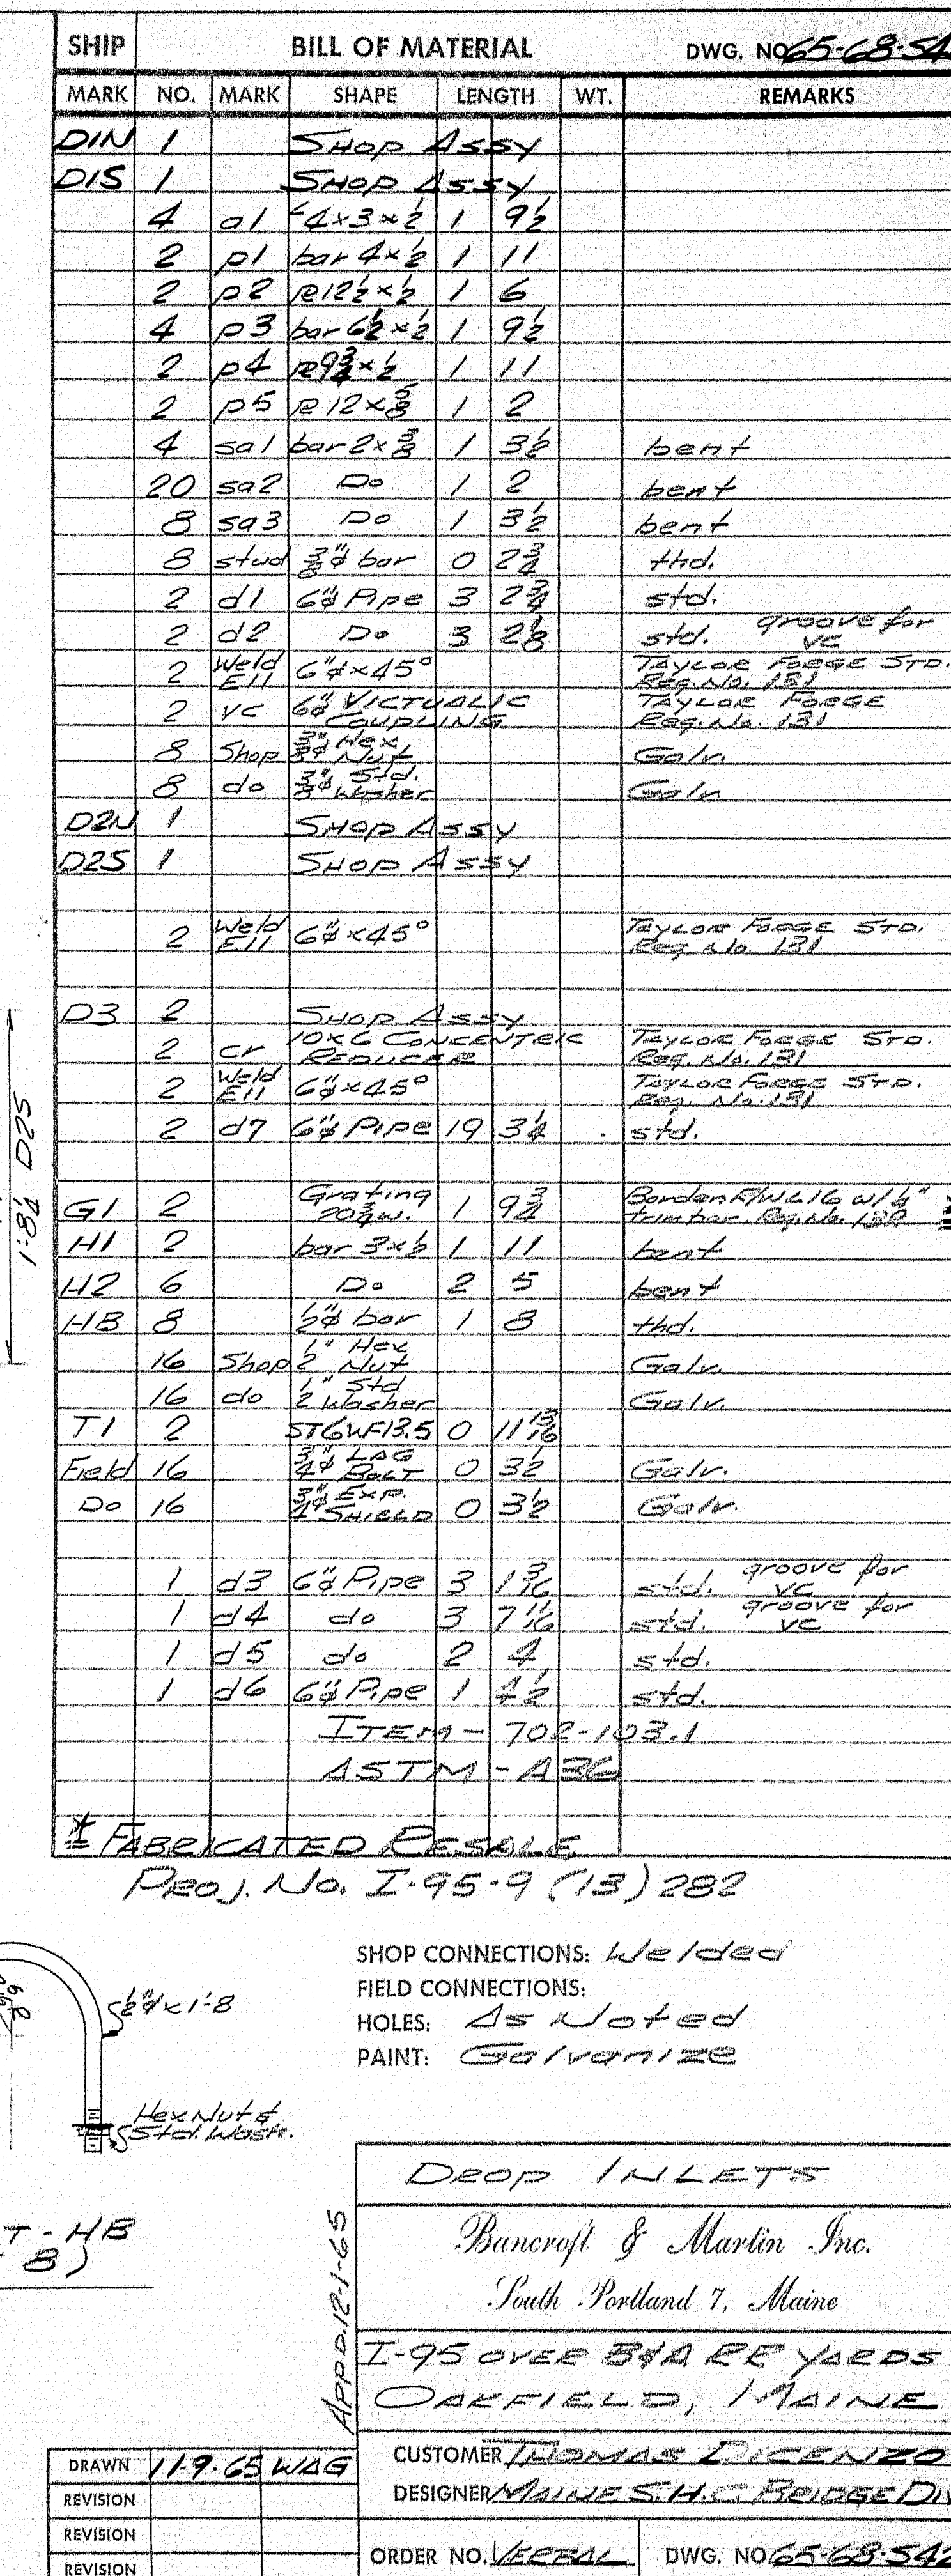 SHIP BILL OF MATERIAL DWG. NO 65-68-S4
MARK NO. MARK SHAPE LENGTH WT. REMARKS
D1N 1 SHOP ASSY
D1S 1 SHOP ASSY
4 a1 ∠4x3x½ 1 9½
2 p1 bar 4x½ 1 11
2 p2 ℞12½x½ 1 6
4 p3 bar 6½x½ 1 9½
2 p4 ℞9¾x½ 1 11
2 p5 ℞12x⅝ 1 2
4 sa1 bar 2x⅜ 1 3½ bent
20 sa2 Do 1 2 bent
8 sa3 Do 1 3½ bent
8 stud ⅜"ϕ bar 0 2¾ thd.
2 d1 6"ϕ Pipe 3 2¾ std.
2 d2 Do 3 2⅛ std. groove for VC
2 Weld Ell 6"ϕx45° TAYLOR FORGE STD. Req. No. 131
2 vc 6"ϕ VICTUALIC COUPLING TAYLOR FORGE Req. No. 131
8 Shop ⅜"ϕ Hex Nut Galv.
8 do ⅜"ϕ Std. Washer Galv.
D2N 1 SHOP ASSY
D2S 1 SHOP ASSY
2 Weld Ell 6"ϕx45° TAYLOR FORGE STD. Req. No. 131
D3 2 SHOP ASSY
2 cr 10x6 CONCENTRIC REDUCER TAYLOR FORGE STD. Req. No. 131
2 Weld Ell 6"ϕx45° TAYLOR FORGE STD. Req. No. 131
2 d7 6"ϕ Pipe 19 3¼ std.
G1 2 Grating 20¾ w. 1 9¾ Borden F/W L16 w/¼" trim bar. Req. No. 132 *
H1 2 bar 3x½ 1 11 bent
H2 6 Do 2 5 bent
HB 8 ½"ϕ bar 1 8 thd.
16 Shop ½" Hex Nut Galv.
16 do ½" Std Washer Galv.
T1 2 ST6WF13.5 0 11 13/16
Field 16 ¾"ϕ LAG BOLT 0 3½ Galv.
Do 16 ¾"ϕ EXP. SHIELD 0 3½ Galv.
1 d3 6"ϕ Pipe 3 1 3/16 std. groove for VC
1 d4 do 3 7 11/16 std. groove for VC
1 d5 do 2 4 std.
1 d6 6"ϕ Pipe 1 4½ std.
ITEM - 702-103.1
ASTM - A36
* FABRICATED RESALE
PROJ. No. I-95-9 (13) 282
1'-8¼ D2S
½"ϕ x 1'-8
Hex Nut & Std. Wash.
T - HB
8)
SHOP CONNECTIONS: Welded
FIELD CONNECTIONS:
HOLES: As Noted
PAINT: Galvanize
APP'D. 12-1-65
DROP INLETS
Bancroft & Martin Inc.
South Portland 7, Maine
I-95 OVER B&A RR YARDS
OAKFIELD, MAINE
CUSTOMER THOMAS DICENZO
DESIGNER MAINE S.H.C. BRIDGE DIV
DRAWN 11-9-65 WAG
REVISION
REVISION
REVISION
ORDER NO. VERBAL DWG. NO 65-68-S42